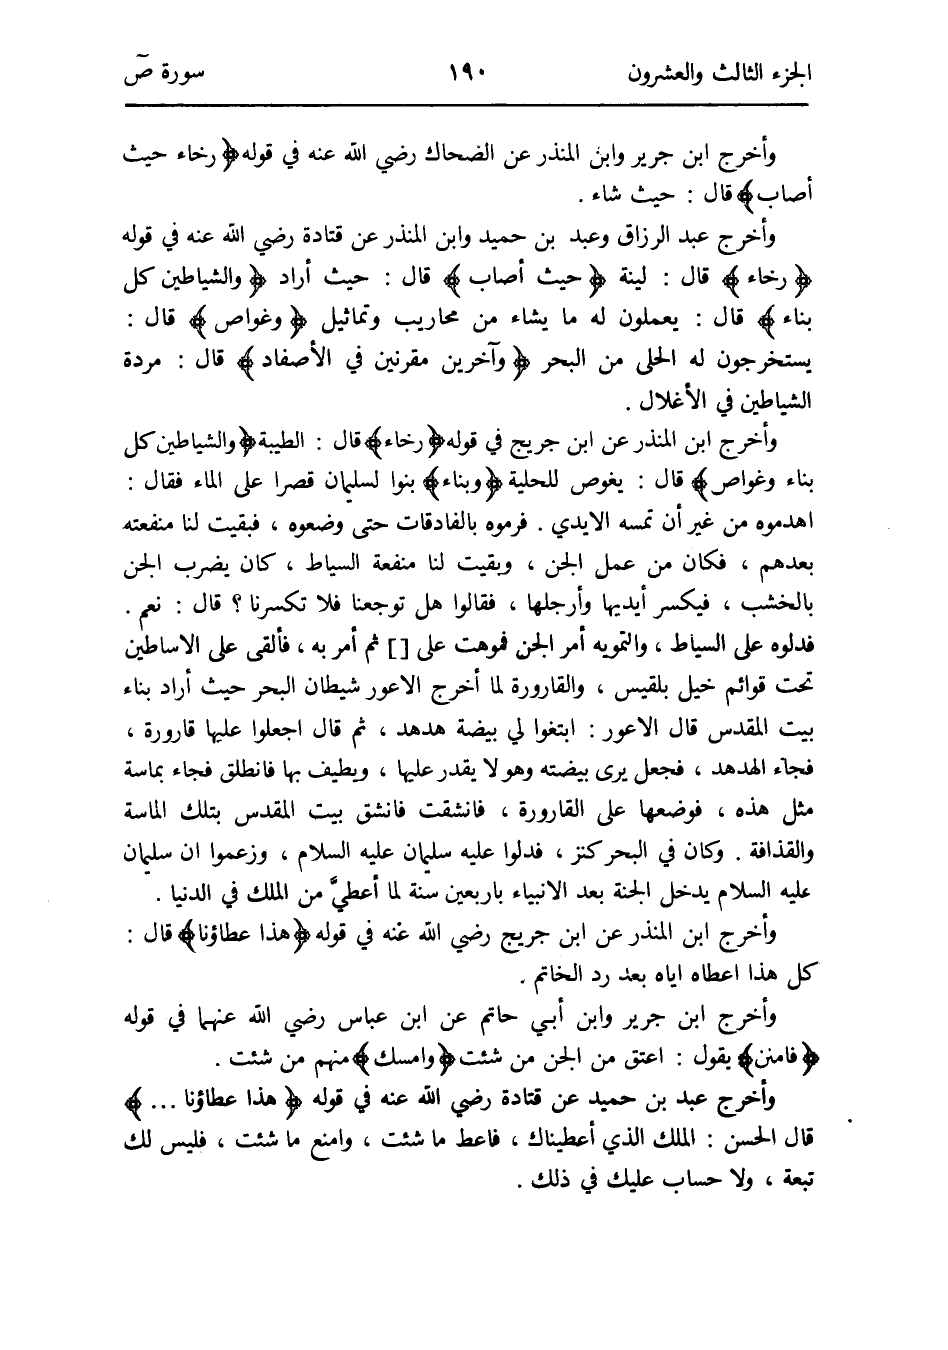 الجزء الثالث والعشرون ١٩٠ سورة صٓ
وأخرج ابن جرير وابن المنذر عن الضحاك رضي الله عنه في قوله ﴿ رخاء حيث
أصاب ﴾ قال : حيث شاء .
وأخرج عبد الرزاق وعبد بن حميد وابن المنذر عن قتادة رضي الله عنه في قوله
﴿ رخاء ﴾ قال : لينة ﴿ حيث أصاب ﴾ قال : حيث أراد ﴿ والشياطين كل
بناء ﴾ قال : يعملون له ما يشاء من محاريب وتماثيل ﴿ وغواص ﴾ قال :
يستخرجون له الحلى من البحر ﴿ وآخرين مقرنين في الأصفاد ﴾ قال : مردة
الشياطين في الأغلال .
وأخرج ابن المنذر عن ابن جريج في قوله ﴿ رخاء ﴾ قال : الطيبة ﴿ والشياطين كل
بناء وغواص ﴾ قال : يغوص للحلية ﴿ وبناء ﴾ بنوا لسليمان قصرا على الماء فقال :
اهدموه من غير أن تمسه الايدي . فرموه بالفادقات حتى وضعوه ، فبقيت لنا منفعته
بعدهم ، فكان من عمل الجن ، وبقيت لنا منفعة السياط ، كان يضرب الجن
بالخشب ، فيكسر أيديها وأرجلها ، فقالوا هل توجعنا فلا تكسرنا ؟ قال : نعم .
فدلوه على السياط ، والتمويه أمر الجن فموهت على [] ثم أمر به ، فألقى على الاساطين
تحت قوائم خيل بلقيس ، والقارورة لما أخرج الاعور شيطان البحر حيث أراد بناء
بيت المقدس قال الاعور : ابتغوا لي بيضة هدهد ، ثم قال اجعلوا عليها قارورة ،
فجاء الهدهد ، فجعل يرى بيضته وهو لا يقدر عليها ، ويطيف بها فانطلق فجاء بماسة
مثل هذه ، فوضعها على القارورة ، فانشقت فانشق بيت المقدس بتلك الماسة
والقذافة . وكان في البحر كنز ، فدلوا عليه سليمان عليه السلام ، وزعموا ان سليمان
عليه السلام يدخل الجنة بعد الانبياء باربعين سنة لما أعطيَّ من الملك في الدنيا .
وأخرج ابن المنذر عن ابن جريج رضي الله عنه في قوله ﴿ هذا عطاؤنا ﴾ قال :
كل هذا اعطاه اياه بعد رد الخاتم .
وأخرج ابن جرير وابن أبي حاتم عن ابن عباس رضي الله عنهما في قوله
﴿ فامنن ﴾ يقول : اعتق من الجن من شئت ﴿ وامسك ﴾ منهم من شئت .
وأخرج عبد بن حميد عن قتادة رضي الله عنه في قوله ﴿ هذا عطاؤنا ... ﴾
قال الحسن : الملك الذي أعطيناك ، فاعط ما شئت ، وامنع ما شئت ، فليس لك
تبعة ، ولا حساب عليك في ذلك .